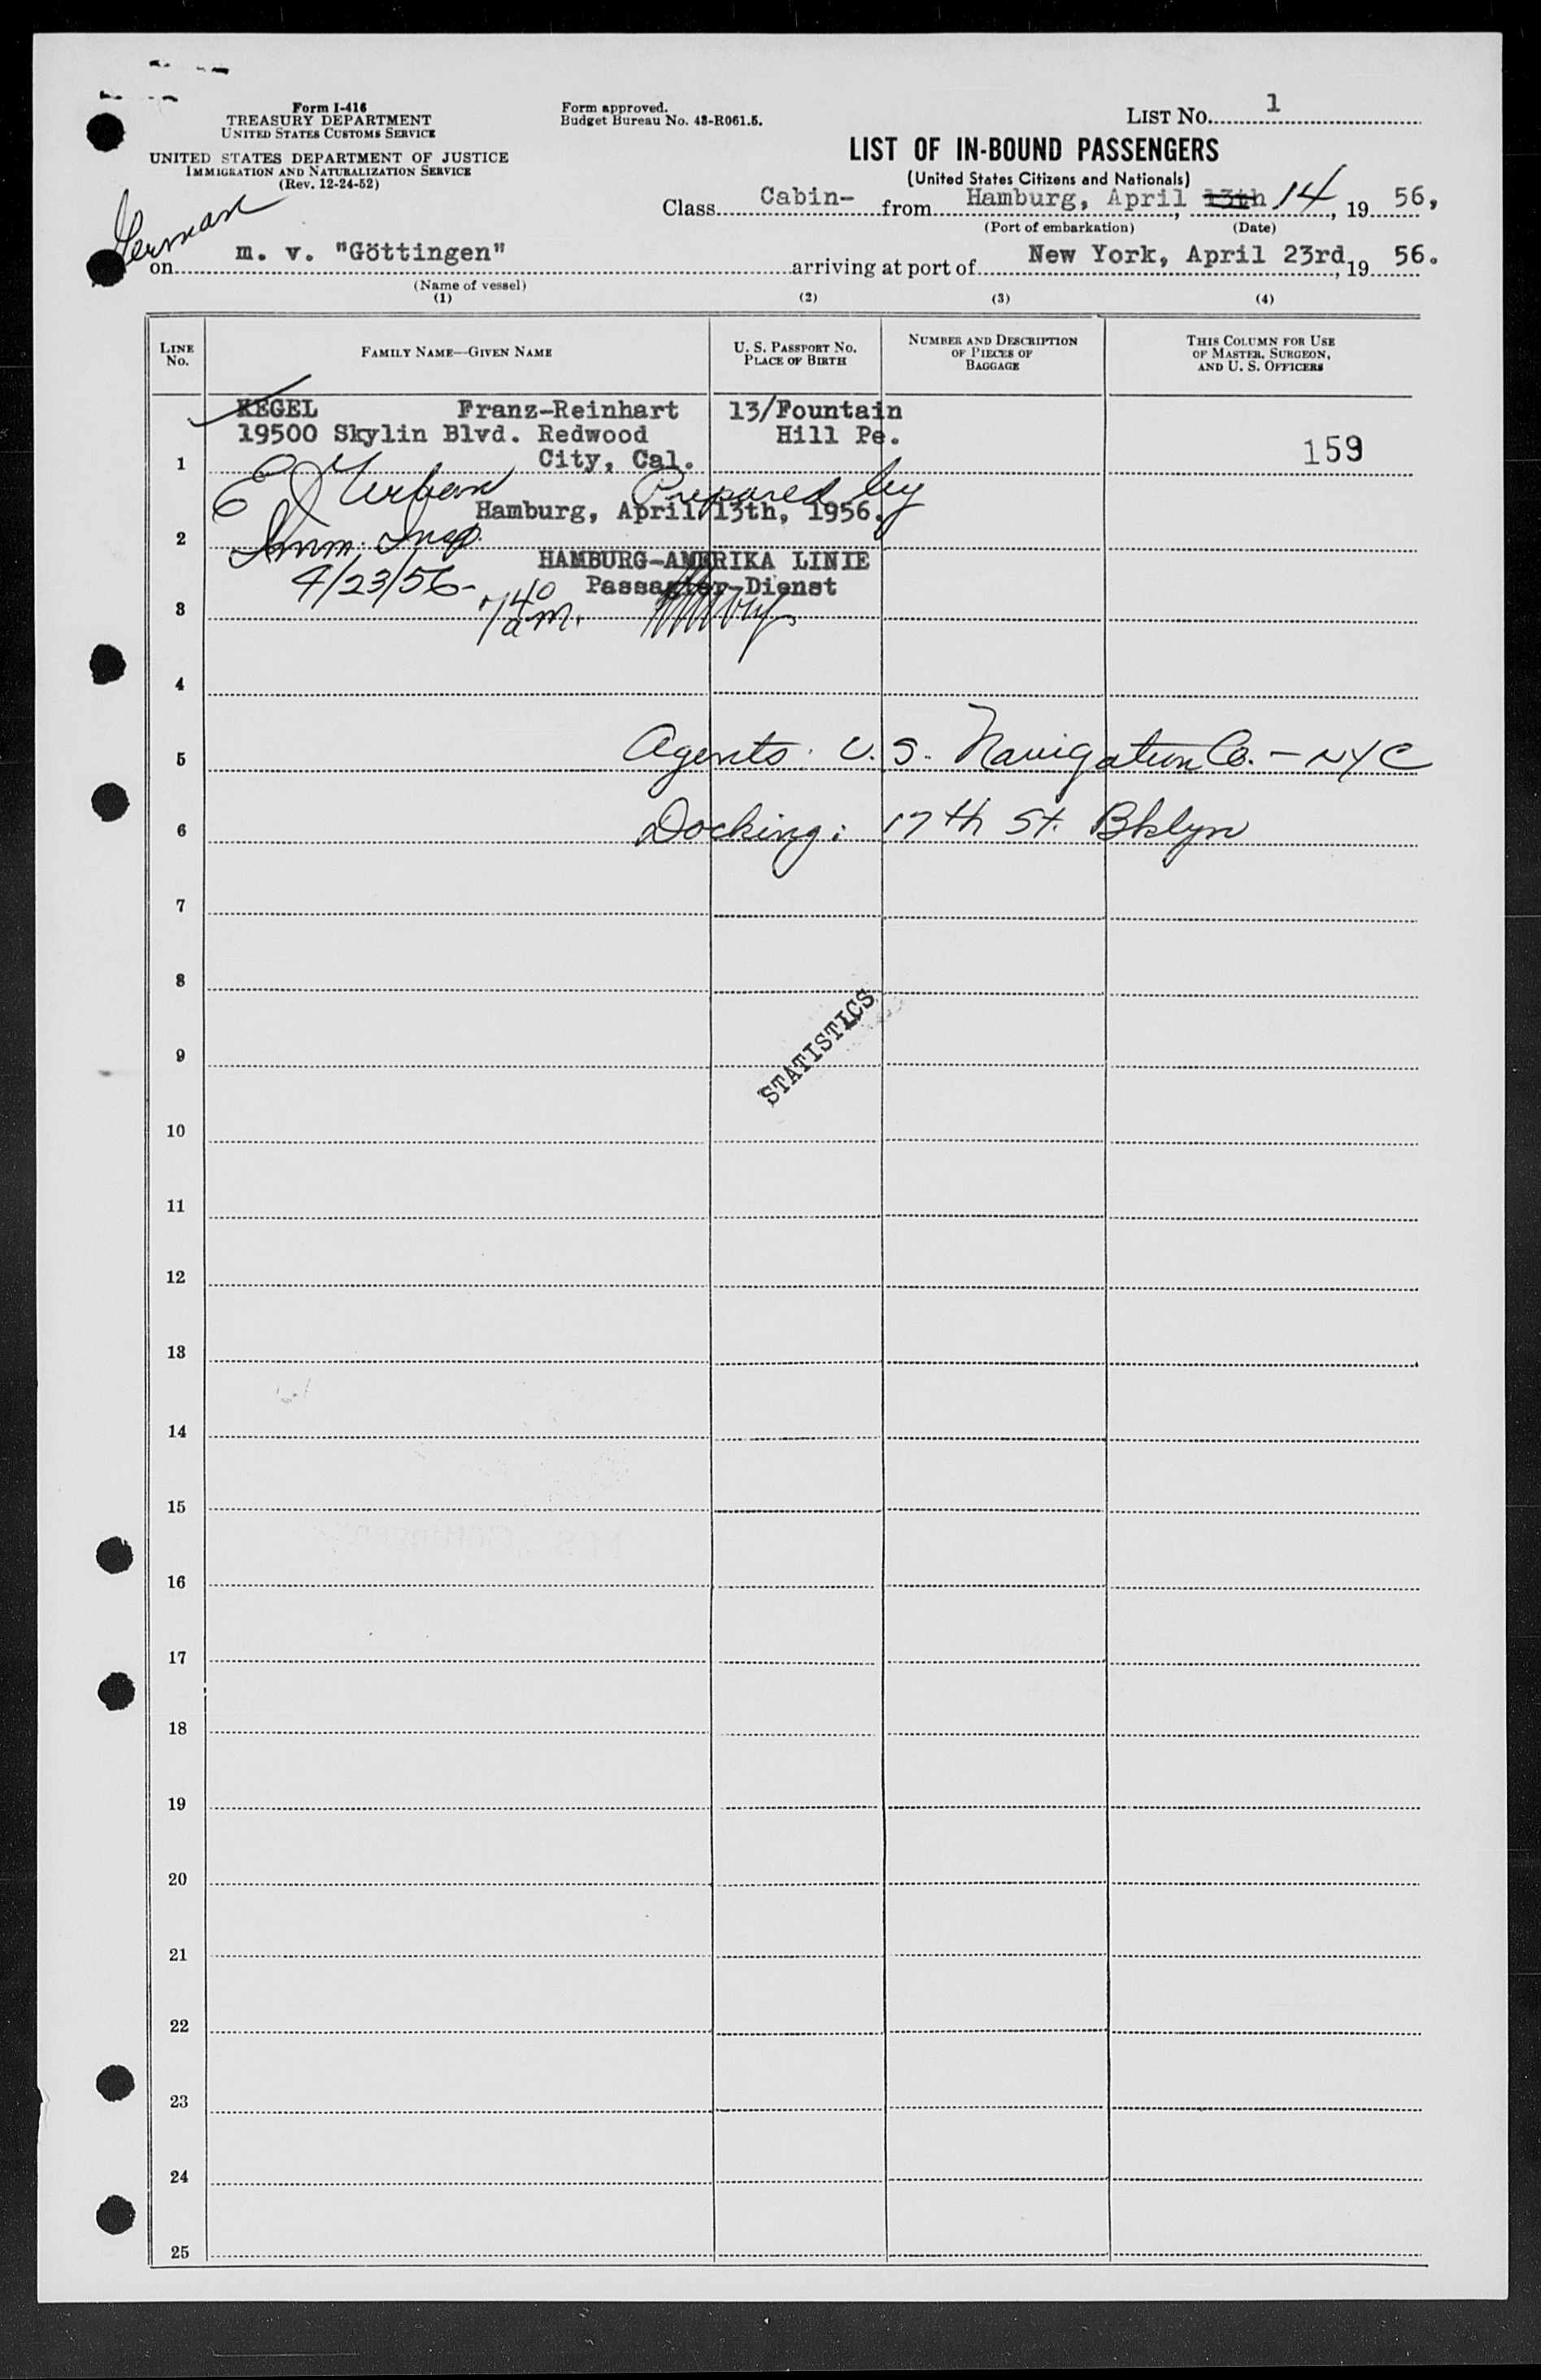 Form I-416
TREASURY DEPARTMENT
UNITED STATES CUSTOMS SERVICE
UNITED STATES DEPARTMENT OF JUSTICE
IMMIGRATION AND NATURALIZATION SERVICE
(Rev. 12-24-52)
Form approved.
Budget Bureau No. 43-R061.5.
LIST No. 1
LIST OF IN-BOUND PASSENGERS
(United States Citizens and Nationals)
Class Cabin- from Hamburg, April 13th 14, 19 56,
(Port of embarkation) (Date)
German
on m. v. "Göttingen" arriving at port of New York, April 23rd, 19 56.
(Name of vessel)
(1) (2) (3) (4)
LINE No.
FAMILY NAME—GIVEN NAME
U. S. PASSPORT No.
PLACE OF BIRTH
NUMBER AND DESCRIPTION
OF PIECES OF
BAGGAGE
THIS COLUMN FOR USE
OF MASTER, SURGEON,
AND U. S. OFFICERS
KEGEL Franz-Reinhart 13/Fountain
19500 Skylin Blvd. Redwood Hill Pe.
1 City, Cal. 159
E J Urban Prepared by
Hamburg, April 13th, 1956.
2 Imm. Insp.
HAMBURG-AMERIKA LINIE
4/23/56- Passagier-Dienst
3 7 40 a.m.
4
5 Agents: U.S. Navigation Co. - NYC
6 Docking: 17th St. Bklyn
7
8
STATISTICS
9
10
11
12
13
14
15
16
17
18
19
20
21
22
23
24
25